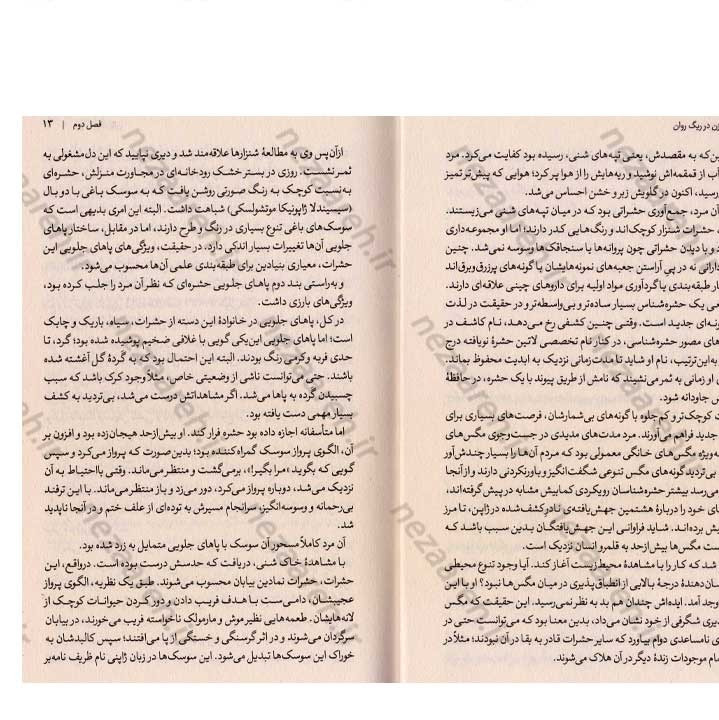 زن در ریگ روان
ین که به مقصدش، یعنی تپه‌های شنی، رسیده بود کفایت می‌کرد. مرد
آب از قمقمه‌اش نوشید و ریه‌هایش را از هوا پر کرد؛ هوایی که پیش‌تر تمیز
رسید، اکنون در گلویش زبر و خشن احساس می‌شد.
آن مرد، جمع‌آوری حشراتی بود که در میان تپه‌های شنی می‌زیستند.
، حشرات شنزار کوچک‌اند و رنگ‌هایی کدر دارند؛ اما او مجموعه‌داری
د و با دیدن حشراتی چون پروانه‌ها یا سنجاقک‌ها وسوسه نمی‌شد. چنین
دارانی نه در پی آراستن جعبه‌های نمونه‌هایشان با گونه‌های پرزرق‌وبرق‌اند
ار طبقه‌بندی یا گردآوری مواد اولیه برای داروهای چینی علاقه‌ای دارند.
عی یک حشره‌شناس بسیار ساده‌تر و بی‌واسطه‌تر و در حقیقت در لذت
ونه‌ای جدید است. وقتی چنین کشفی رخ می‌دهد، نام کاشف در
های مصور حشره‌شناسی، در کنار نام تخصصی لاتین حشرهٔ نویافته درج
به این‌ترتیب، نام او شاید تا مدت‌زمانی نزدیک به ابدیت محفوظ بماند.
او زمانی به ثمر می‌نشیند که نامش از طریق پیوند با یک حشره، در حافظهٔ
س جاودانه شود.
ت کوچک‌تر و کم‌جلوه با گونه‌های بی‌شمارشان، فرصت‌های بسیاری برای
جدید فراهم می‌آورند. مرد مدت‌های مدیدی در جست‌وجوی مگس‌های
به‌ویژه مگس‌های خانگی معمولی بود که مردم آن‌ها را بسیار چندش‌آور
بی‌تردید گونه‌های مگس تنوعی شگفت‌انگیز و باورنکردنی دارند و از آنجا
می‌رسد بیشتر حشره‌شناسان رویکردی کمابیش مشابه در پیش گرفته‌اند،
های خود را دربارهٔ هشتمین جهش‌یافته‌ی نادر کشف‌شده در ژاپن، تا مرز
یش برده‌اند. شاید فراوانی این جهش‌یافتگان بدین سبب باشد که
ست مگس‌ها بیش‌ازحد به قلمرو انسان نزدیک است.
شد که کار را با مشاهدهٔ محیط‌زیست آغاز کند. آیا وجود تنوع محیطی
ان‌دهندهٔ درجهٔ بالایی از انطباق‌پذیری در میان مگس‌ها نبود؟ او با این
وجد آمد. ایده‌اش چندان هم بد به نظر نمی‌رسید. این حقیقت که مگس
یری شگرفی از خود نشان می‌داد، بدین معنا بود که می‌توانست حتی در
ی نامساعدی دوام بیاورد که سایر حشرات قادر به بقا در آن نبودند؛ مثلاً در
مام موجودات زندهٔ دیگر در آن هلاک می‌شوند.
فصل دوم | ۱۳
ازآن‌پس وی به مطالعهٔ شنزارها علاقه‌مند شد و دیری نپایید که این دل‌مشغولی به
ثمر نشست. روزی در بستر خشک رودخانه‌ای در مجاورت منزلش، حشره‌ای
به‌نسبت کوچک به رنگ صورتی روشن یافت که به سوسک باغی با دو بال
(سیسیندلا ژاپونیکا موتشولسکی) شباهت داشت. البته این امری بدیهی است که
سوسک‌های باغی تنوع بسیاری در رنگ و طرح دارند، اما در مقابل، ساختار پاهای
جلویی آن‌ها تغییرات بسیار اندکی دارد. در حقیقت، ویژگی‌های پاهای جلویی این
حشرات، معیاری بنیادین برای طبقه‌بندی علمی آن‌ها محسوب می‌شود.
و به‌راستی بند دوم پاهای جلویی حشره‌ای که نظر آن مرد را جلب کرده بود،
ویژگی‌های بارزی داشت.
در کل، پاهای جلویی در خانوادهٔ این دسته از حشرات، سیاه، باریک و چابک
است؛ اما پاهای جلویی این‌یکی گویی با غلافی ضخیم پوشیده شده بود؛ گرد، تا
حدی فربه و کرمی رنگ بودند. البته این احتمال بود که به گَردهٔ گل آغشته شده
باشند. حتی می‌توانست ناشی از وضعیتی خاص، مثلاً وجود کرک باشد که سبب
چسبیدن گرده به پاها می‌شد. اگر مشاهداتش درست می‌شد، بی‌تردید به کشف
بسیار مهمی دست یافته بود.
اما متأسفانه اجازه داده بود حشره فرار کند. او بیش‌ازحد هیجان‌زده بود و افزون بر
آن، الگوی پرواز سوسک گمراه‌کننده بود؛ بدین‌صورت که پرواز می‌کرد و سپس
گویی که بگوید «مرا بگیر!»، برمی‌گشت و منتظر می‌ماند. وقتی بااحتیاط به آن
نزدیک می‌شد، دوباره پرواز می‌کرد، دور می‌زد و باز منتظر می‌ماند. با این ترفند
بی‌رحمانه و وسوسه‌انگیز، سرانجام مسیرش به توده‌ای از علف ختم و در آنجا ناپدید
شد.
آن مرد کاملاً مسحور آن سوسک با پاهای جلویی متمایل به زرد شده بود.
با مشاهدهٔ خاک شنی، دریافت که حدسش درست بوده است. درواقع، این
حشرات، حشرات نمادین بیابان محسوب می‌شوند. طبق یک نظریه، الگوی پرواز
عجیبشان، دامی‌ست با هدف فریب دادن و دور کردن حیوانات کوچک از
لانه‌هایشان. طعمه‌هایی نظیر موش و مارمولک ناخواسته فریب می‌خورند، در بیابان
سرگردان می‌شوند و در اثر گرسنگی و خستگی از پا می‌افتند؛ سپس کالبدشان به
خوراک این سوسک‌ها تبدیل می‌شود. این سوسک‌ها در زبان ژاپنی نام ظریف نامه‌بر